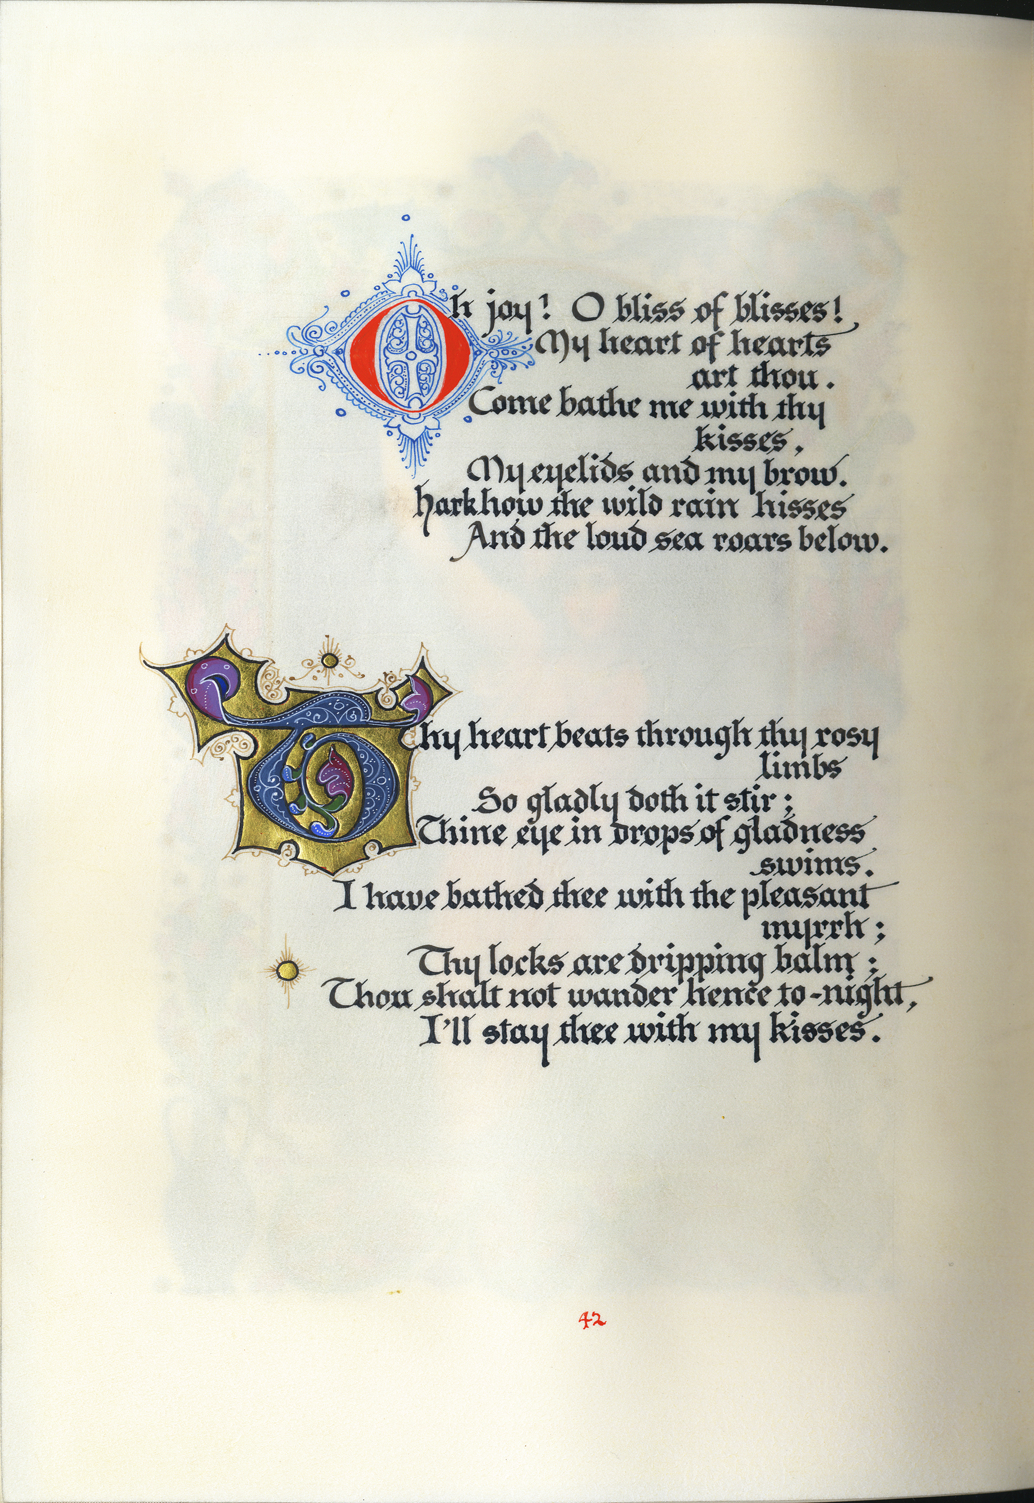 Oh joy! O bliss of blisses!
My heart of hearts
art thou.
Come bathe me with thy
kisses,
My eyelids and my brow.
Hark how the wild rain hisses
And the loud sea roars below.
Thy heart beats through thy rosy
limbs
So gladly doth it stir;
Thine eye in drops of gladness
swims.
I have bathed thee with the pleasant
myrrh;
Thy locks are dripping balm;
Thou shalt not wander hence to-night,
I'll stay thee with my kisses.
42